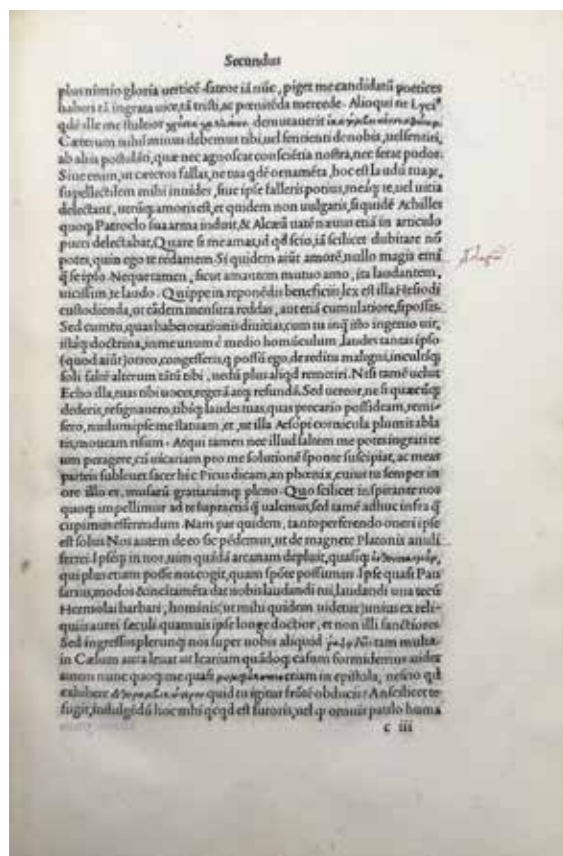 Secundus
plus nimio gloria uerticē. fateor iā nūc, piget me candidatū poetices
haberi tā ingrata uice, tā tristi, ac pœnitēda mercede. Alioqui ne Lyciꝰ
qdē ille me stultior demutauerit
Cæterum nihil minus debemus tibi, uel sentienti de nobis, uel sentiri,
ab aliis postulāti, quæ nec agnoscat consciētia nostra, nec ferat pudor.
Siue enim, ut cæteros fallas, ne tua qdē ornamēta, hoc est laudū tuaꝝ,
supellectilem mihi inuides, siue ipse falleris potius, meáq; te, uel uitia
delectant, utrūq; amoris est, et quidem non uulgaris, siquidē Achilles
quoq; Patroclo sua arma induit, & Alcæū uatē næuus etiā in articulo
pueri delectabat, Quare si me amas, id qd scio, iā scilicet dubitare nō
potes, quin ego te redamem. Si quidem aiūt amorē, nullo magis emi
q̄ se ipso. Neque tamen, sicut amantem mutuo amo, ita laudantem,
uicissim, te laudo. Quippe in reponēdis beneficiis, lex est illa Hesiodi
custodienda, ut eādem mensura reddas, aut etiā cumulatiore, si possis.
Sed cum tu, quas habes orationis diuitias, cum tu inq̄ isto ingenio uir,
istáq; doctrina, in me unom ē medio homūculum, laudes tantas ipso
(quod aiūt) orreo, congesseris, q̄ possū ego, de reditu maligni, incultiq;
soli saltē alterum tātū tibi, nedū plus aliqd remetiri. Nisi tamē uelut
Echo illa, mas tibi uoces, regerā atq; refundā. Sed uereor, ne si quæcūq;
dederis, resignauero, tibiq; laudes tuas, quas precario possideam, remi-
sero, nudum ipse me sistam, et, ut illa Aesopi cornicula plumis abla
tis, moueam risum. Atqui tamen nec illud saltem me potes ingrati re
um peragere, cū uicariam pro me solutionē sponte suscipiat, ac meas
parteis subleuet sacer hic Picus dicam, an phœnix, cuius tu semper in
ore illo es, musarū gratiarumq; pleno. Quo scilicet inspirante nos
quoq; impellimur ad te supra quā q̄ ualemus, sed tamē adhuc infra q̄
cupimus efferendum. Nam par quidem, tanto perferendo oneri ipse
est solus. Nos autem de eo sic pēdemus, ut de magnete Platonis anuli
ferrei. Ipseq; in nos, uim quādā arcanam depluit, quasiq;
qui plus etiam posse nos cogit, quam spōte possumus. Ipse quasi Pau
sarius, modos & oncitamēta dat nobis laudandi tui, laudandi una tecū
Hermolai barbari, hominis, ut mihi quidem uidetur junius ex reli-
quiis aurei sæculi quamuis ipse longe doctior, et non illi sanctiores
Sed ingressis plerunq; nos super nobis aliquod tam multa
in Cælum aura leuat ut Icarium quādoq; casum formidemus uides
autem nunc quoq; me quasi etiam in epistola, nescio qd
exhibere quid tu igitur frōtē obducis? An scilicet te
fugit, indulgēdū hoc mihi qcqd est furoris, uel q̄ omnis paulo huma
c iii